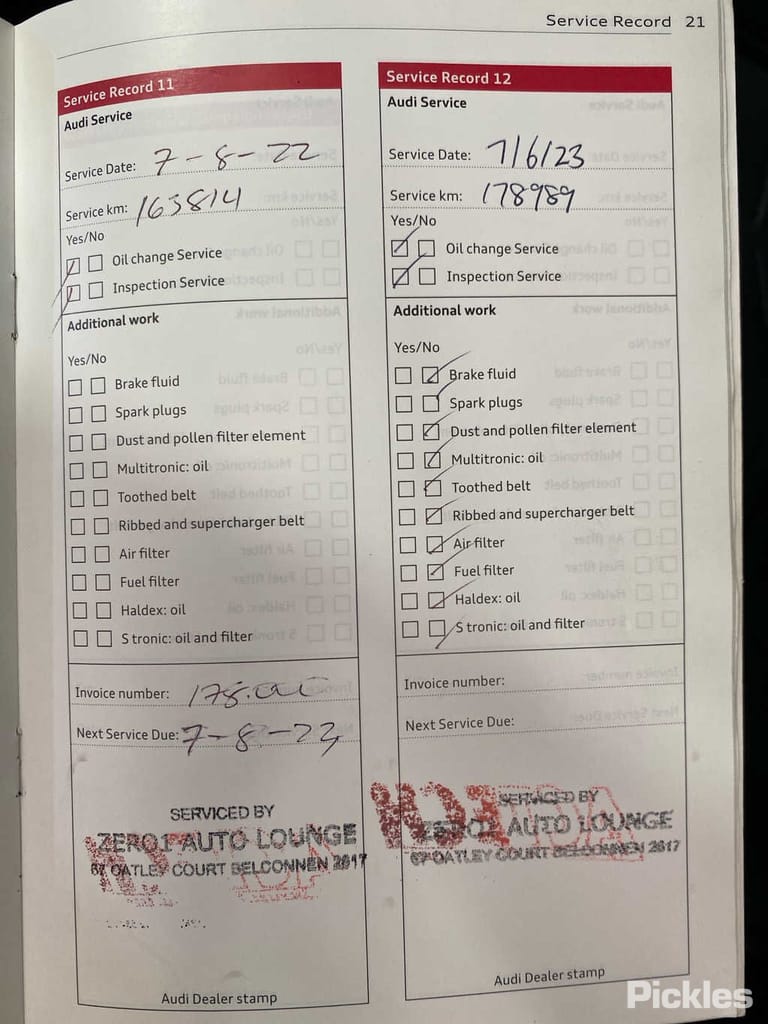 Service Record 21
Service Record 11
Audi Service
Service Date: 7-8-22
Service km: 163814
Yes/No
Oil change Service
Inspection Service
Additional work
Yes/No
Brake fluid
Spark plugs
Dust and pollen filter element
Multitronic: oil
Toothed belt
Ribbed and supercharger belt
Air filter
Fuel filter
Haldex: oil
S tronic: oil and filter
Invoice number:
Next Service Due: 7-8-23
SERVICED BY
ZERO1 AUTO LOUNGE
67 OATLEY COURT BELCONNEN 2617
Audi Dealer stamp
Service Record 12
Audi Service
Service Date: 7/6/23
Service km: 178989
Yes/No
Oil change Service
Inspection Service
Additional work
Yes/No
Brake fluid
Spark plugs
Dust and pollen filter element
Multitronic: oil
Toothed belt
Ribbed and supercharger belt
Air filter
Fuel filter
Haldex: oil
S tronic: oil and filter
Invoice number:
Next Service Due:
SERVICED BY
ZERO1 AUTO LOUNGE
67 OATLEY COURT BELCONNEN 2617
Audi Dealer stamp
Pickles